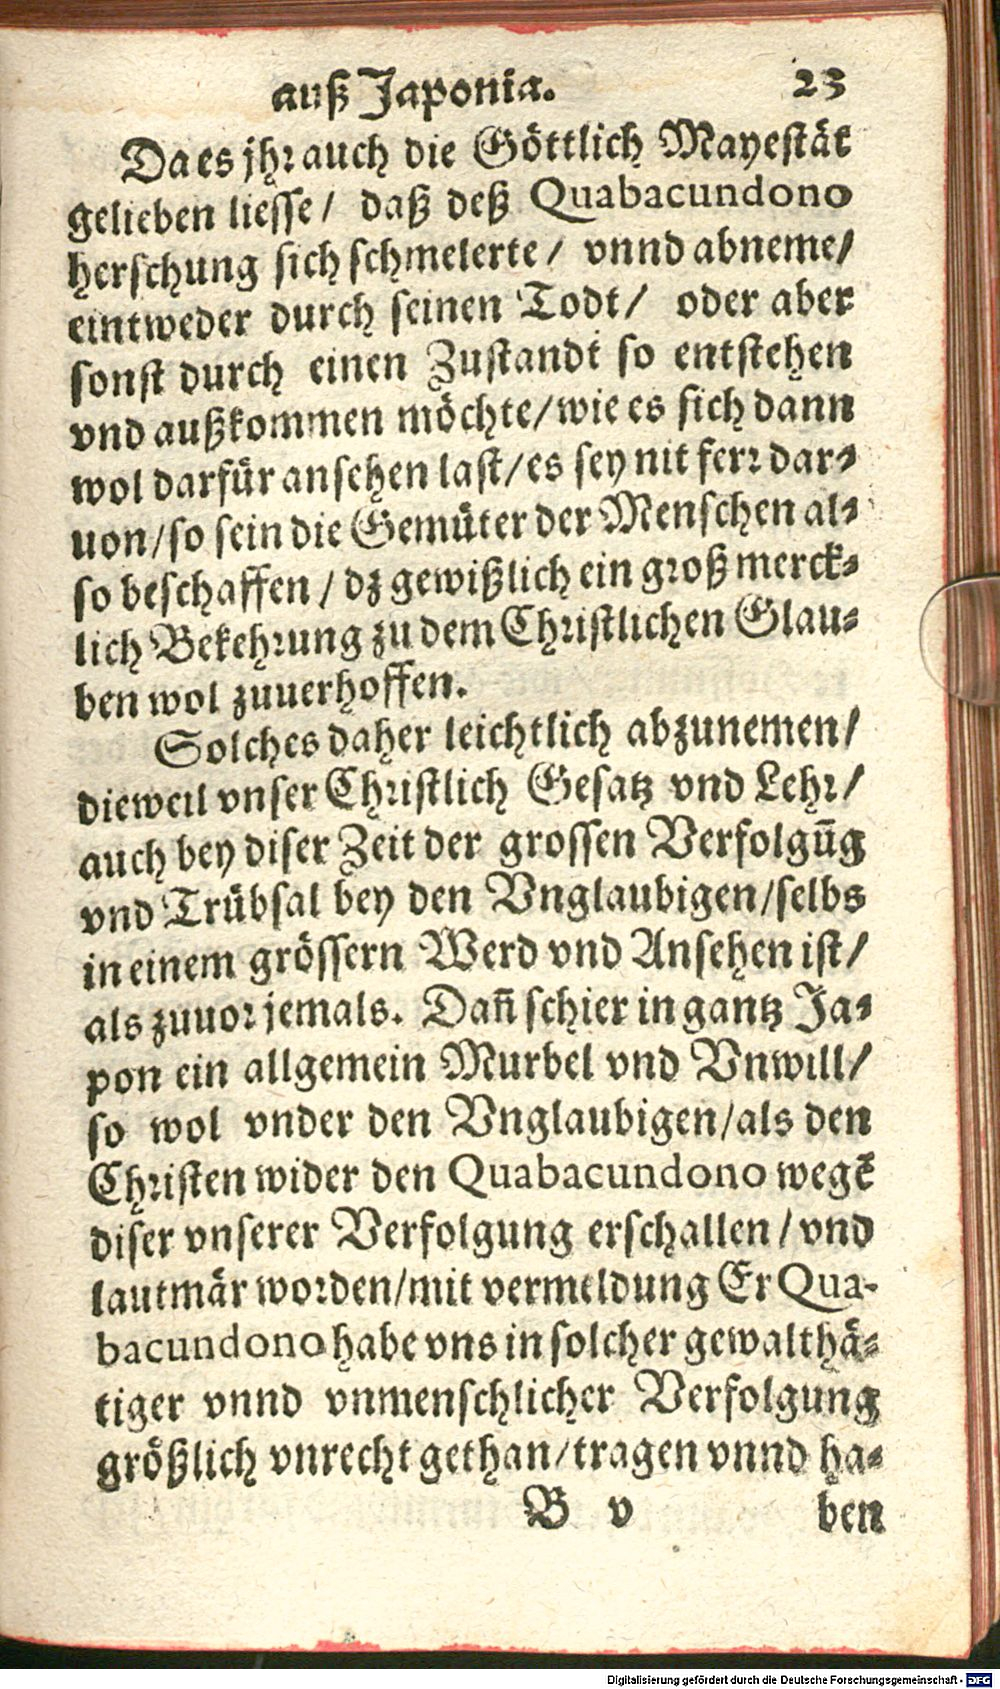 auß Japonia. 23
Da es jhr auch die Göttlich Mayestät
gelieben liesse / daß deß Quabacundono
herschung sich schmelerte / vnnd abneme /
eintweder durch seinen Todt / oder aber
sonst durch einen Zustandt so entstehen
vnd außkommen möchte / wie es sich dann
wol darfür ansehen last / es sey nit ferr dar-
uon / so sein die Gemüter der Menschen al-
so beschaffen / dz gewißlich ein groß merck-
lich Bekehrung zu dem Christlichen Glau-
ben wol zuuerhoffen.
Solches daher leichtlich abzunemen /
dieweil vnser Christlich Gesatz vnd Lehr /
auch bey diser Zeit der grossen Verfolgūg
vnd Trübsal bey den Vnglaubigen / selbs
in einem grössern Werd vnd Ansehen ist /
als zuuor jemals. Dañ schier in gantz Ja-
pon ein allgemein Murbel vnd Vnwill /
so wol vnder den Vnglaubigen / als den
Christen wider den Quabacundono wegē
diser vnserer Verfolgung erschallen / vnd
lautmär worden / mit vermeldung Er Qua-
bacundono habe vns in solcher gewalthä-
tiger vnnd vnmenschlicher Verfolgung
größlich vnrecht gethan / tragen vnnd ha-
B v ben
Digitalisierung gefördert durch die Deutsche Forschungsgemeinschaft - DFG